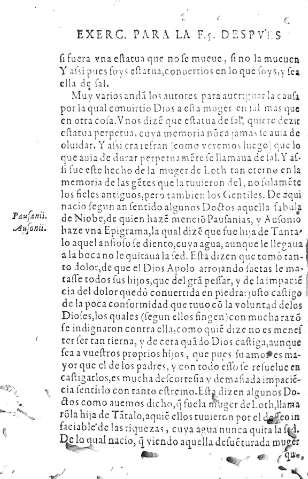 EXERC. PARA LA F. 5. DESPVES
si fuera vna estatua que no se mueue, si no la mueuen
Y assi pues soys estatua, conuertios en lo que soys, y sea
ella de sal.
Muy varios andã los autores para aueriguar la causa
por la qual conuirtio Dios a esta muger en sal mas que
en otra cosa. Vnos dizẽ que estatua de sal, quiere dezir
estatua perpetua, cuya memoria nũca jamas se auia de
oluidar. Y assi era refran [como veremos luego] que lo
que auia de durar perpetuamẽte se llamaua de sal. Y as-
si fue este hecho de la muger de Loth tan eterno en la
memoria de las gẽtes que la tuuieron del, no solamẽte
los fieles antiguos, pero tambien los Gentiles. De aqui
nacio segun an sentido algunos Doctos aquella fabula
de Niobe, de quien hazẽ menciõ Pausanias, y Ausonio
Pausanii.
haze vna Epigrama, la qual dizẽ que fue hija de Tanta-
Ausonii.
lo aquel anhelo se diento, cuya agua, aunque le llegaua
a la boca no le quitaua la sed. Esta dizen que tomò tan-
to dolor, de que el Dios Apolo arrojando saetas le ma-
tasse todos sus hijos, que del grã pessar, y de la impaciẽ
cia del dolor quedò conuertida en piedra: justo castigo
de la poca conformidad que tuuo cõ la voluntad de los
Dioses, los quales (segun ellos fingen) con mucha razõ
se indignaron contra ella, como quiẽ dize no es menes
ter ser tan tierna, y de cera quãdo Dios castiga, aunque
sea a vuestros proprios hijos, que pues su amor es ma-
yor que el de los padres, y con todo esso se resuelue en
castigarlos, es mucha descortesia y demasiada impaciẽ-
cia sentillo con tanto estremo. Esta dizen algunos Do-
ctos como auemos dicho, q̃ fue la muger de Loth, llama
rõla hija de Tãtalo, aquiẽ ellos tuuieron por el desseo in
saciable de las riquezas, cuya agua nunca quita la sed.
De lo qual nacio, q̃ viendo aquella desuẽturada muger
que,